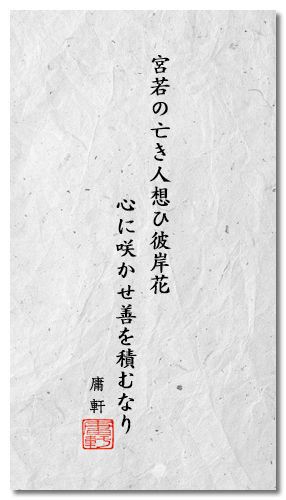 宮若の亡き人想ひ彼岸花
心に咲かせ善を積むなり
庸軒